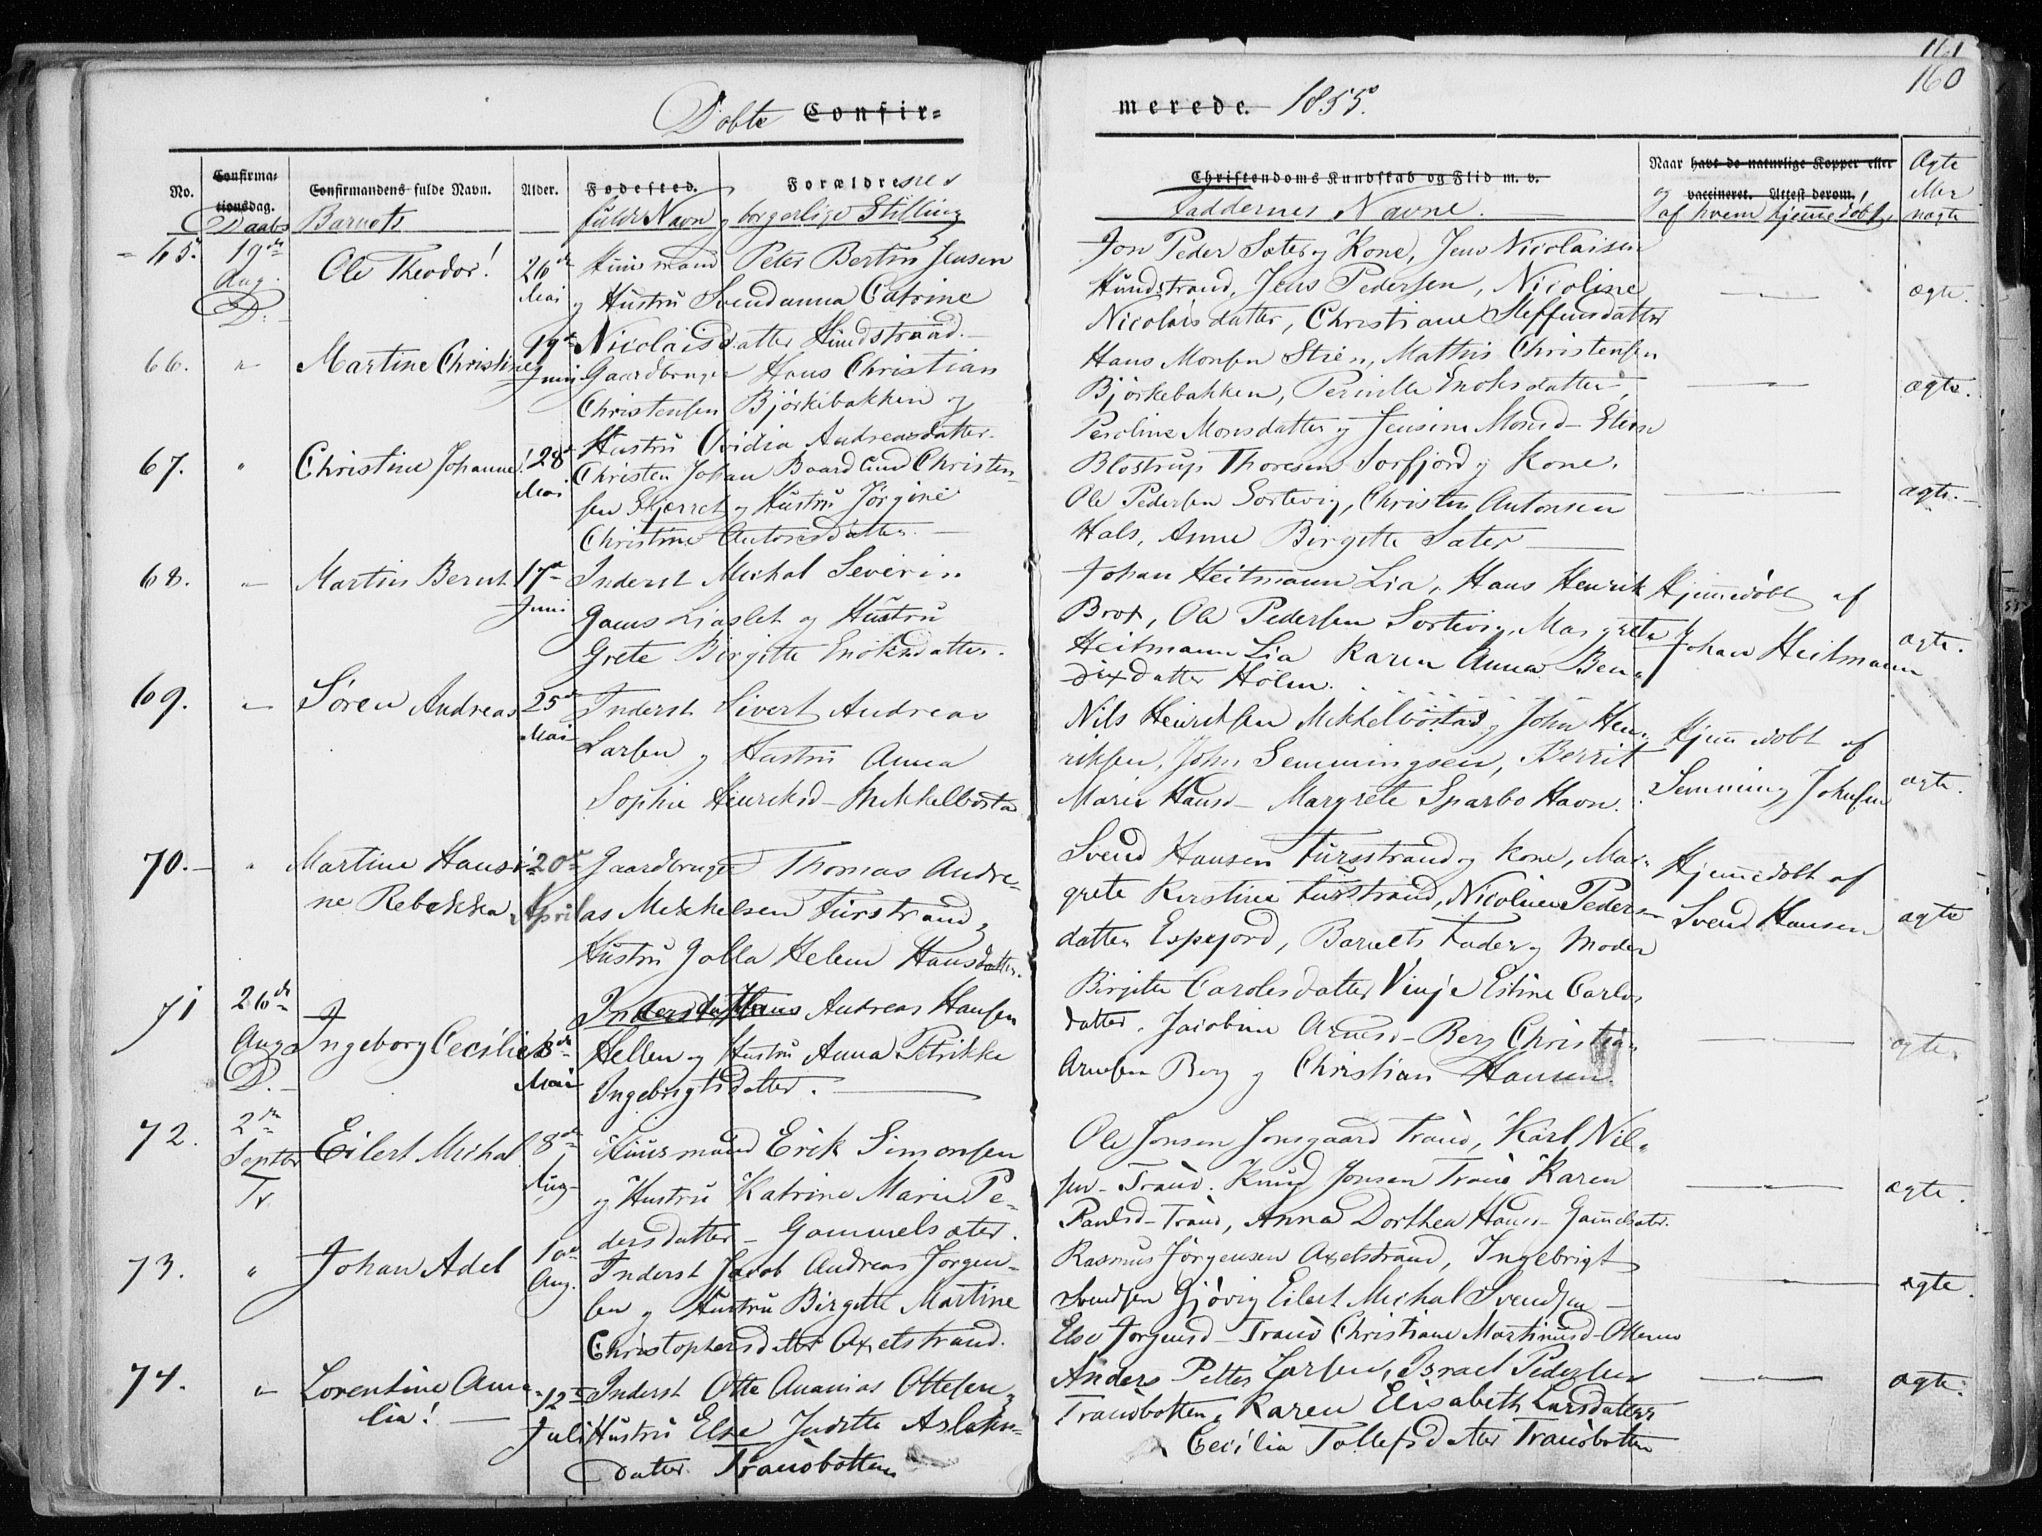 161
160
Døbte Confir=
merede. 1855.
No.
Confirma-
tionsdag.
Daabs
Confirmandens fulde Navn.
Barnets
Alder.
Fødested.
fulde Navn
Forældrenes
og borgerlige Stilling
Christendoms Kundskab og Flid m. v.
Faddernes Navne.
Naar havt de naturlige Kopper eller
vaccineret. Attest derom.
og af hvem hjemmedøbt
Ægte
eller
uægte
65.
19de
Aug.
D.
Ole Theodor!
26de
Mai
Huusmand Peter Bertin Jensen
og Hustru Svendanna Catrine
Nicolaisdatter Hundstrand.
Jon Peder Sæter og Kone, Jens Nicolaisen
Hundstrand, Jens Pedersen, Nicoline
Nicolaisdatter, Christiane Steffensdatter
ægte.
66.
"
Martine Christine
19de
Juni
Gaardbruger Hans Christian
Christensen Bjørkebakken og
Hustru Ovidia Andreasdatter.
Hans Monsen Stien, Mathis Christensen
Bjørkebakken, Pernille Enoksdatter,
Peroline Monsdatter og Jensine Monsd- Stien
ægte.
67.
"
Christine Johanne!
28de
Mai
Christen Johan Baardlund Christen-
sen Skjærret og Hustru Jørgine
Christine Antonsdatter.
Blostrup Thoresen Sorfjord og Kone,
Ole Pedersen Sortevig, Christen Antonsen
Hals, Anne Birgitte Sæter
ægte.
68.
"
Martin Bernt
17de
Juni
Inderst Michal Severin
Gaus Liaslet og Hustru
Grete Birgitte Enoksdatter.
Johan Heitmann Lia, Hans Henrik
Brox, Ole Pedersen Sortevig, Margrete
Heitmann Lia Karen Anna Ben-
dixdatter Holm.
Hjemmedøbt af
Johan Heitmann
ægte.
69.
"
Søren Andreas
25de
Mai
Inderst Sivert Andreas
Larsen og Hustru Anna
Sophie Henriksd- Mikkelbosta
Nils Henriksen Mikkelbostad og John Hen-
riksen, John Semmingsen, Berrit
Marie Hansd- Margrete Sparbo Havn.
Hjemmedøbt af
Semming Johnsen
ægte.
70.
"
Martine Hansi-
ne Rebekka
20de
April
Gaardbruger Thomas Andre-
as Mikkelsen Furstrand og
Hustru Jolla Helene Hansdatter.
Svend Hansen Furstrand og Kone, Mar-
grete Kirstine Furstrand, Nicoline Peders-
datter Espejord, Barnets Fader og Moder
Hjemmedøbt af
Svend Hansen
ægte
71
26de
Aug.
D.
Ingeborg Cecilie
8de
Mai
Inderst Hans Andreas Hansen
Hellen og Hustru Anna Petrikke
Ingebrigtsdatter.
Birgitte Carolesdatter Vinje Estine Carls-
datter, Jacobine Arnesd- Berg Christian
Arnesen Berg og Christian Hansen.
ægte.
72.
2de
Septbr
Tr.
Eilert Michal
8de
Aug
Huusmand Erik Simonsen
og Hustru Katrine Marie Pe-
dersdatter - Gammelsæter.
Ole Jonsen Jonsgaard Tranø, Karl Nil-
sen- Tranø. Knud Jonsen Tranø Karen
Paulsd- Tranø, Anna Dorthea Hansd- Gammelsæter.
ægte.
73.
"
Johan Adel
10de
Aug.
Inderst Jacob Andreas Jørgen-
sen og Hustru Birgitte Martine
Christophersdatter Axelstrand.
Rasmus Jørgensen Axelstrand, Ingebrigt
Svendsen Gjøvig Eilert Michal Svendsen
Else Jørgensd- Tranø Christiane Martinusd-
ægte.
74.
"
Lorentine Ama-
lia!
12te
Juli
Inderst Otte Ananias Ottesen og
Hustru Else Judithe Aslaksn-
datter. Tranøbotten
Anders Petter Larsen, Israel Pedersen
Tranøbotten, Karen Elisabeth Larsdatter
Cecilia Tollefsdatter Tranøbotten
ægte.